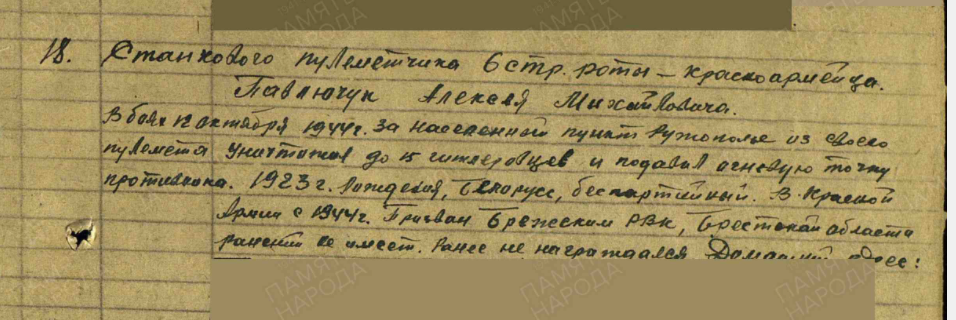 18. Станкового пулеметчика 6 стр. роты – красноармейца.
Павлючук Алексея Михайловича.
В боях 12 октября 1944 г. за населенный пункт Ружополе из своего
пулемета уничтожил до 15 гитлеровцев и подавил огневую точку
противника. 1923 г. рождения, белорус, беспартийный. В Красной
Армии с 1944 г. Призван РВК, Брестской области
ранений не имеет. Ранее не награждался Домашний адрес: